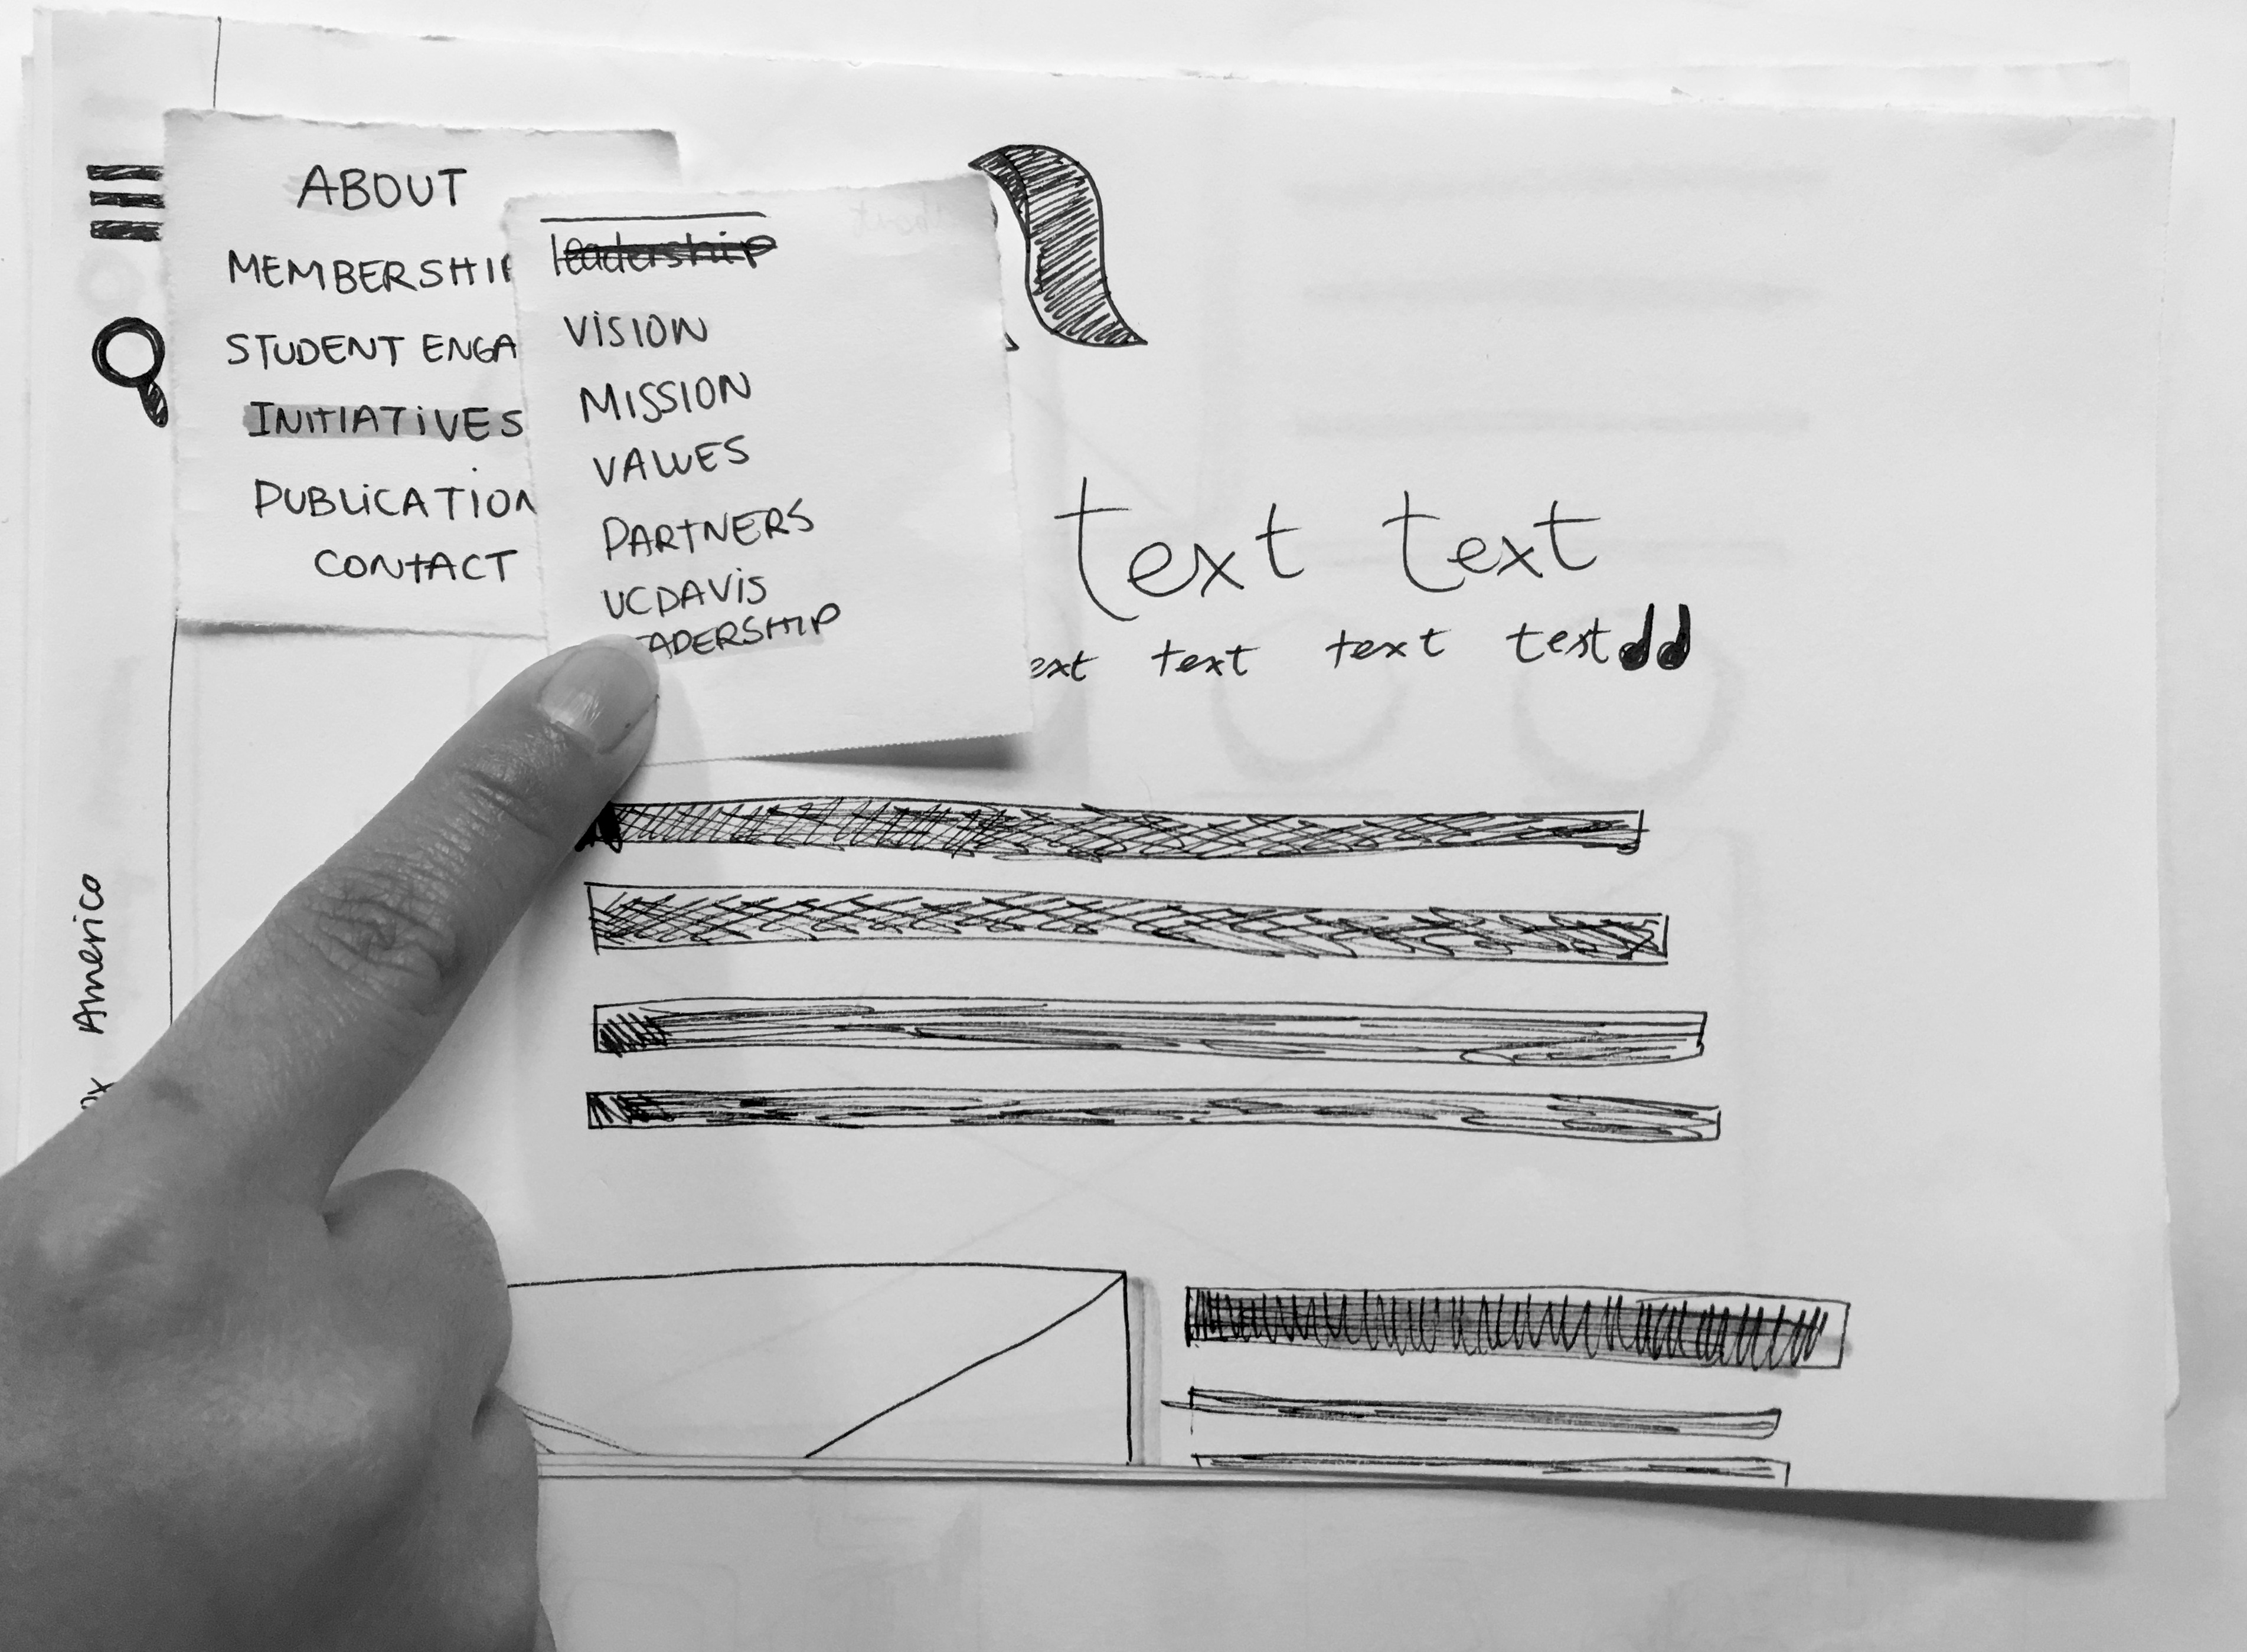 ABOUT
MEMBERSHIP
STUDENT ENGA
INITIATIVES
PUBLICATION
CONTACT
leadership
VISION
MISSION
VALUES
PARTNERS
UCDAVIS
EADERSHIP
text text
ext text text text
Americo